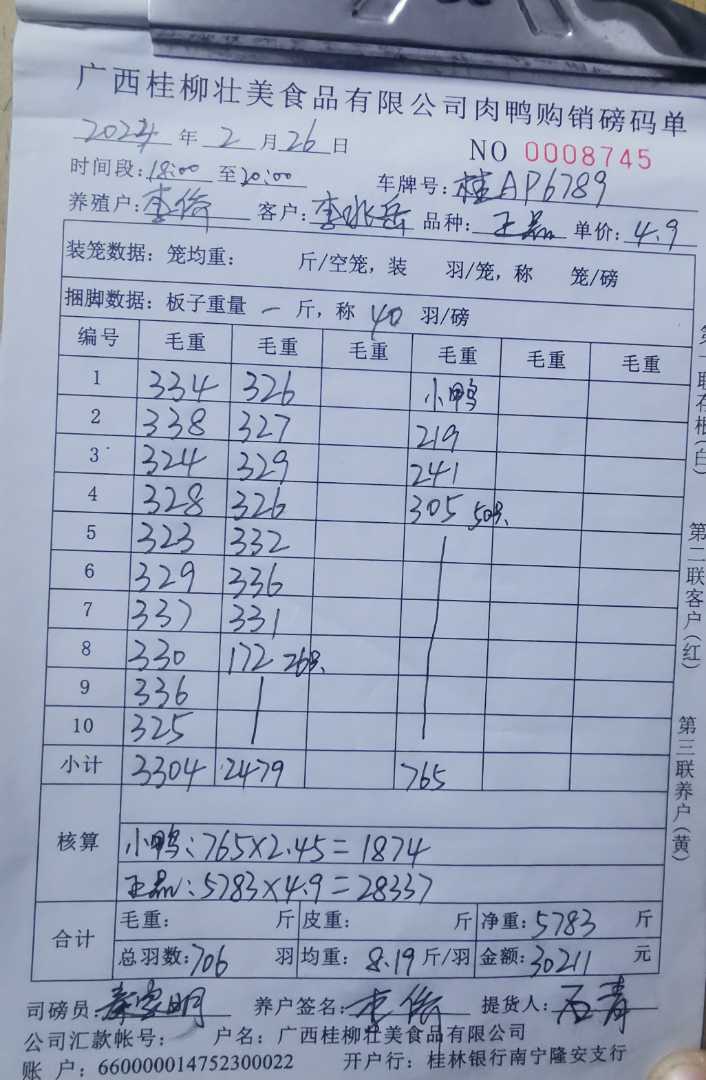 广西桂柳壮美食品有限公司肉鸭购销磅码单
2024年2月26日 NO 0008745
时间段:18:00至20:00 车牌号:桂AP6789
养殖户:李俊 客户:李兆岳 品种:正品 单价:4.9
装笼数据: 笼均重: 斤/空笼,装 羽/笼,称 笼/磅
捆脚数据: 板子重量 一 斤,称 40 羽/磅
编号 毛重 毛重 毛重 毛重 毛重 毛重
1 334 326 小鸭
2 338 327 219
3 324 329 241
4 328 326 305 50只
5 323 332
6 329 336
7 337 331
8 330 172 26只
9 336
10 325
小计 3304 2479 765
核算
小鸭:765×2.45=1874
正品:5783×4.9=28337
合计
毛重: 斤 皮重: 斤 净重:5783 斤
总羽数:706 羽 均重: 8.19 斤/羽 金额:30211 元
司磅员: 养户签名: 提货人:石青
公司汇款帐号: 户名:广西桂柳壮美食品有限公司
账 户:660000014752300022 开户行:桂林银行南宁隆安支行
第一联存根(白)
第二联客户(红)
第三联养户(黄)